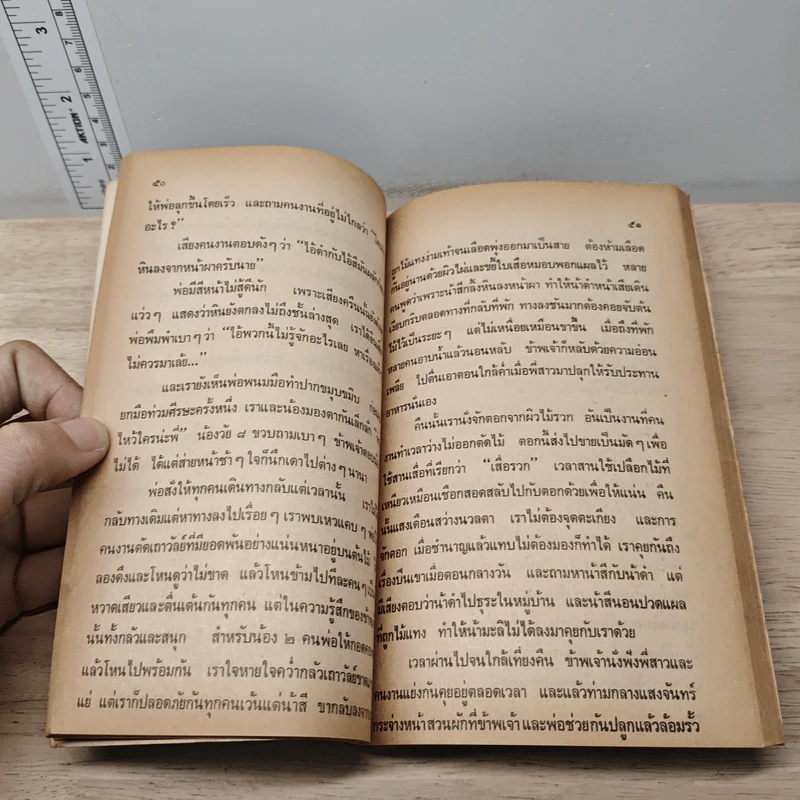 ๕๐
ให้พ่อลุกขึ้นโดยเร็ว และถามคนงานที่อยู่ไม่ไกลว่า
อะไร ?”
เสียงคนงานตอบดังๆ ว่า “ไอ้ดำกับไอ้สีมันผลัก
หินลงจากหน้าผาครับนาย”
พ่อมีสีหน้าไม่สู้ดีนัก เพราะเสียงครืนนั้นยัง
แว่วๆ แสดงว่าหินยังตกลงไม่ถึงชั้นล่างสุด เราได้ยิน
พ่อพึมพำเบาๆ ว่า “ไอ้พวกนี้ไม่รู้จักอะไรเลย หาเรื่อง
ไม่ควรมาเล้ย...”
และเรายังเห็นพ่อพนมมือทำปากขมุบขมิบ ก่อน
ยกมือท่วมศีรษะครั้งหนึ่ง เราและน้องมองตากันเล็กลั่ก
ไหว้ใครน่ะพี่” น้องวัย ๘ ขวบถามเบาๆ ข้าพเจ้าตอบ
ไม่ได้ ได้แต่ส่ายหน้าช้าๆ ใจก็นึกเดาไปต่างๆ นานา
พ่อสั่งให้ทุกคนเดินทางกลับแต่เวลานั้น
กลับทางเดิมแต่หาทางลงไปเรื่อยๆ เราพบเหวแคบๆ
คนงานตัดเถาวัลย์ที่มียอดพันอย่างแน่นหนาอยู่บนต้นไม้
ลองดึงและโหนดูว่าไม่ขาด แล้วโหนข้ามไปทีละคนๆ
หวาดเสียวและตื่นเต้นกันทุกคน แต่ในความรู้สึกของข้าพ
นั้นทั้งกลัวและสนุก สำหรับน้อง ๒ คนพ่อให้กอดคอ
แล้วโหนไปพร้อมกัน เราใจหายใจคว่ำกลัวเถาวัลย์ขาด
แย่ แต่เราก็ปลอดภัยกันทุกคนเว้นแต่น้าสี ขากลับลงจาก
๕๑
ถูกไม้แทงง่ามเท้าจนเลือดพุ่งออกมาเป็นสาย ต้องห้ามเลือด
กันอยู่นานด้วยผิวไผ่และขี้ใบเสือหมอบพอกแผลไว้ หลาย
คนพูดว่าเพราะน้าสีกลิ้งหินลงหน้าผา ทำให้น้าดำหน้าเสียเดิน
เงียบกริบตลอดทางที่กลับที่พัก ทางลงชันมากต้องคอยจับต้น
ไม้ไว้เป็นระยะๆ แต่ไม่เหนื่อยเหมือนขาขึ้น เมื่อถึงที่พัก
หลายคนอาบน้ำแล้วนอนหลับ ข้าพเจ้าก็หลับด้วยความอ่อน
เพลีย ไปตื่นเอาตอนใกล้ค่ำเมื่อพี่สาวมาปลุกให้รับประทาน
อาหารนั่นเอง
คืนนั้นเรานั่งจักตอกจากผิวไม้รวก อันเป็นงานที่คน
งานทำเวลาว่างไม่ออกตัดไม้ ตอกนี้ส่งไปขายเป็นมัดๆ เพื่อ
ใช้สานเสื่อที่เรียกว่า “เสื่อรวก” เวลาสานใช้เปลือกไม้ที่
เหนียวเหมือนเชือกสอดสลับไปกับตอกด้วยเพื่อให้แน่น คืน
นั้นแสงเดือนสว่างนวลตา เราไม่ต้องจุดตะเกียง และการ
จักตอก เมื่อชำนาญแล้วแทบไม่ต้องมองก็ทำได้ เราคุยกันถึง
เรื่องปีนเขาเมื่อตอนกลางวัน และถามหาน้าสีกับน้าดำ แต่
มีเสียงตอบว่าน้าดำไปธุระในหมู่บ้าน และน้าสีนอนปวดแผล
ที่ถูกไม้แทง ทำให้น้ามะลิไม่ได้ลงมาคุยกับเราด้วย
เวลาผ่านไปจนใกล้เที่ยงคืน ข้าพเจ้านั่งฟังพี่สาวและ
คนงานแย่งกันคุยอยู่ตลอดเวลา และแล้วท่ามกลางแสงจันทร์
กระจ่างหน้าสวนผักที่ข้าพเจ้าและพ่อช่วยกันปลูกแล้วล้อมรั้ว
3
2
1
ACTION
8
7
6
5
4
3
2
1